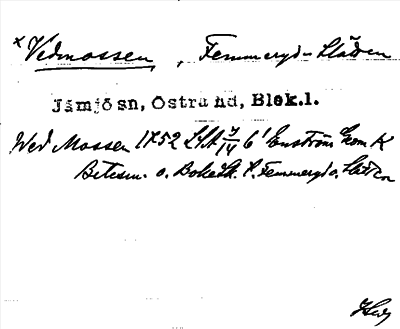 × Vedmossen, Femmeryd o Slädden
Jämjö sn, Östra hd, Blek.l.
Wed Mossen 1752 LSA 7/14 6' Enström kom K
Betesm. o. Boket f. Femmeryd o. Slädden